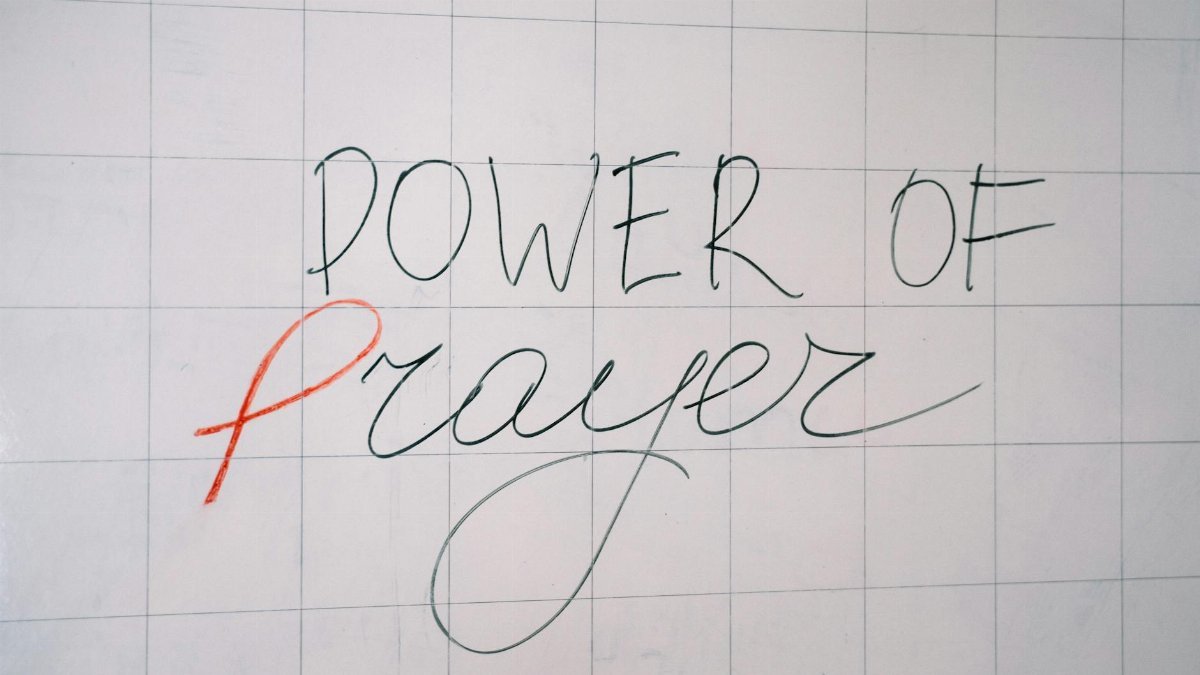 POWER OF
Prayer